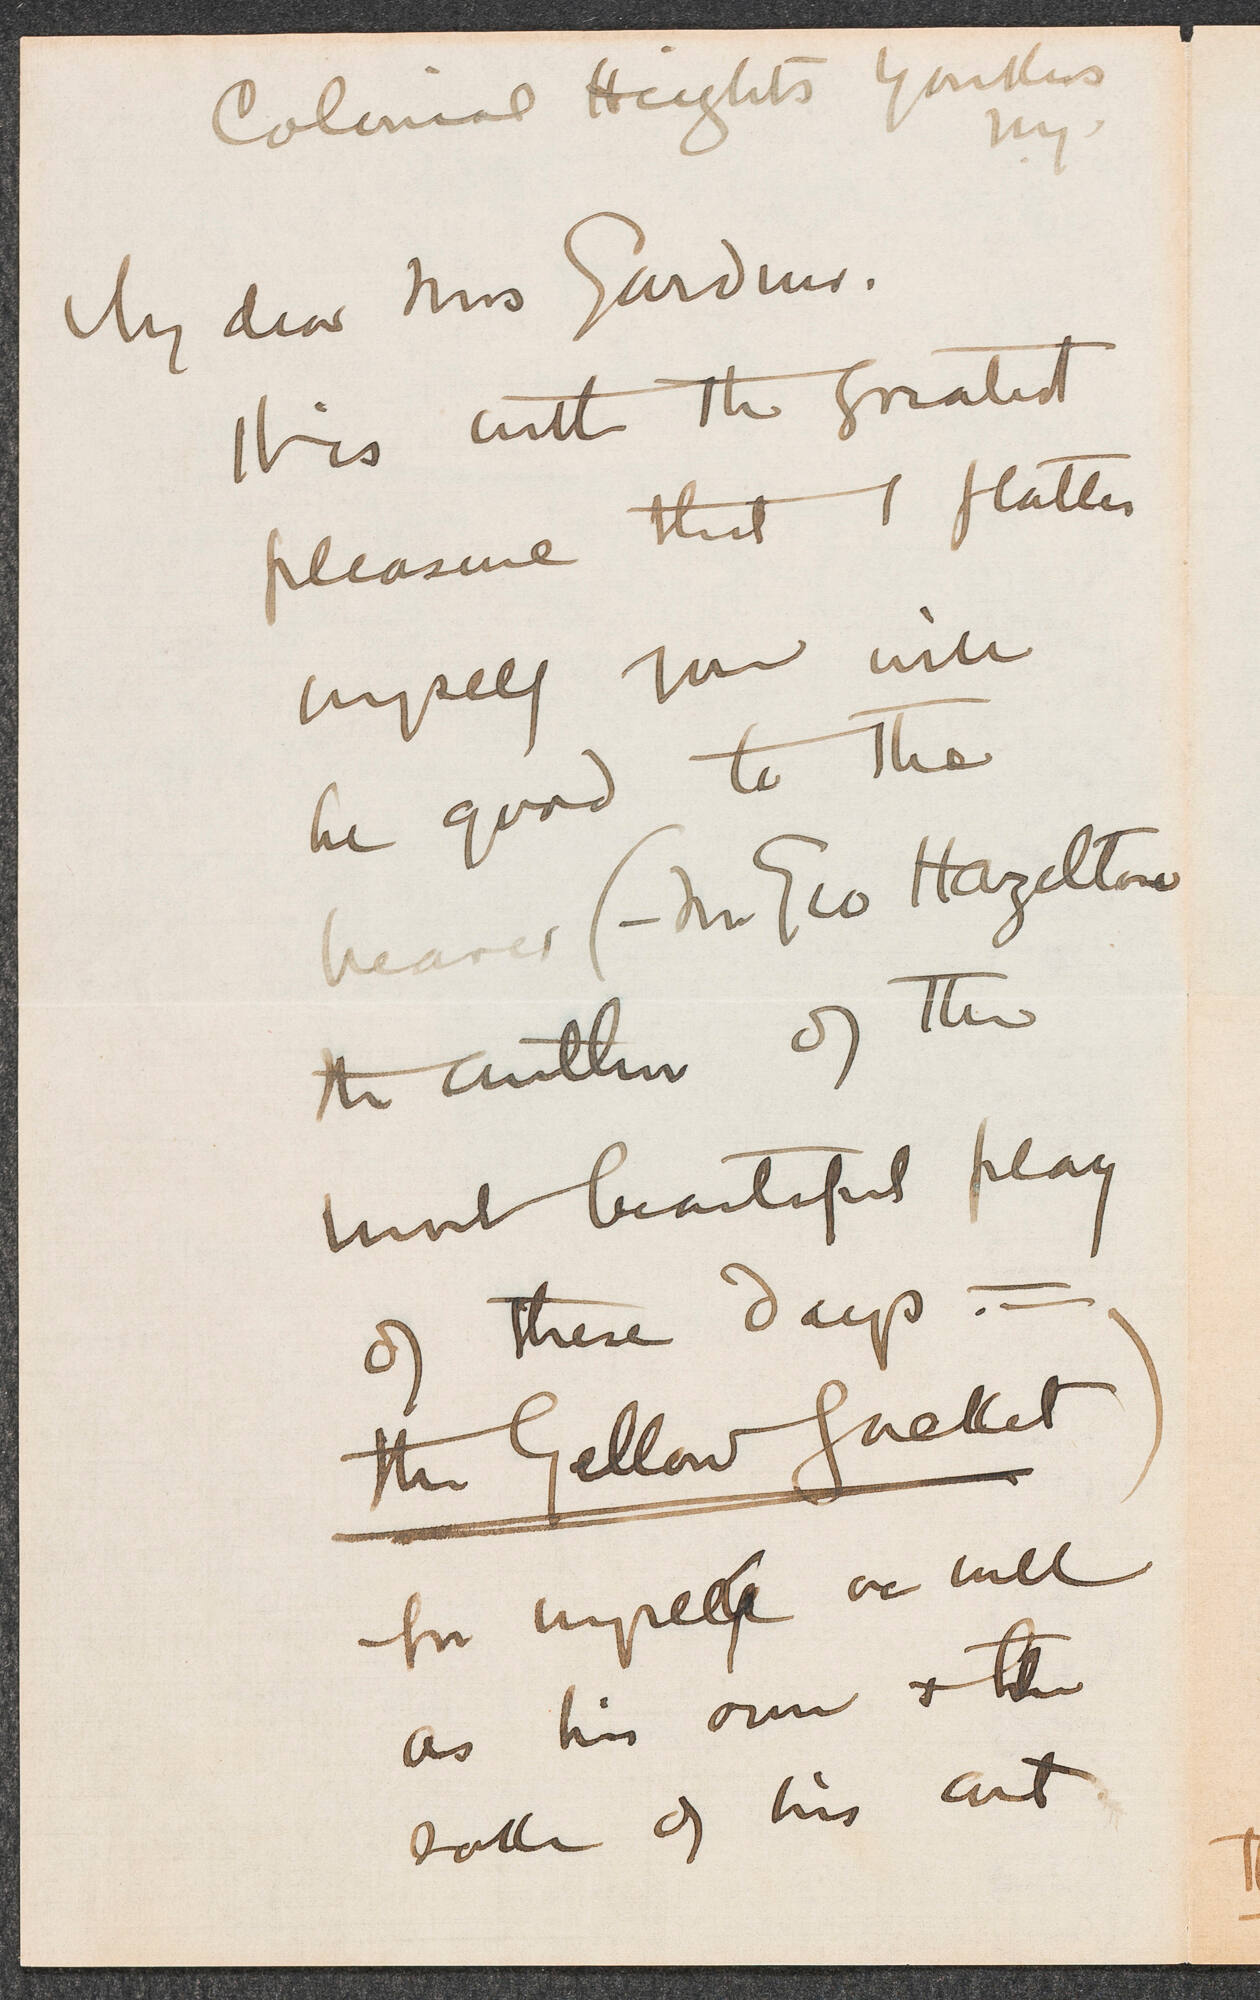 Colonial Heights Yonkers
N.Y.
My dear Mrs Gardner.
It is with the greatest
pleasure that I flatter
myself you will
be good to the
bearer (– Mr Geo Hazelton
the author of the
most beautiful play
of these days :=
the Yellow Jacket)
for myself as well
as his own & the
sake of his art